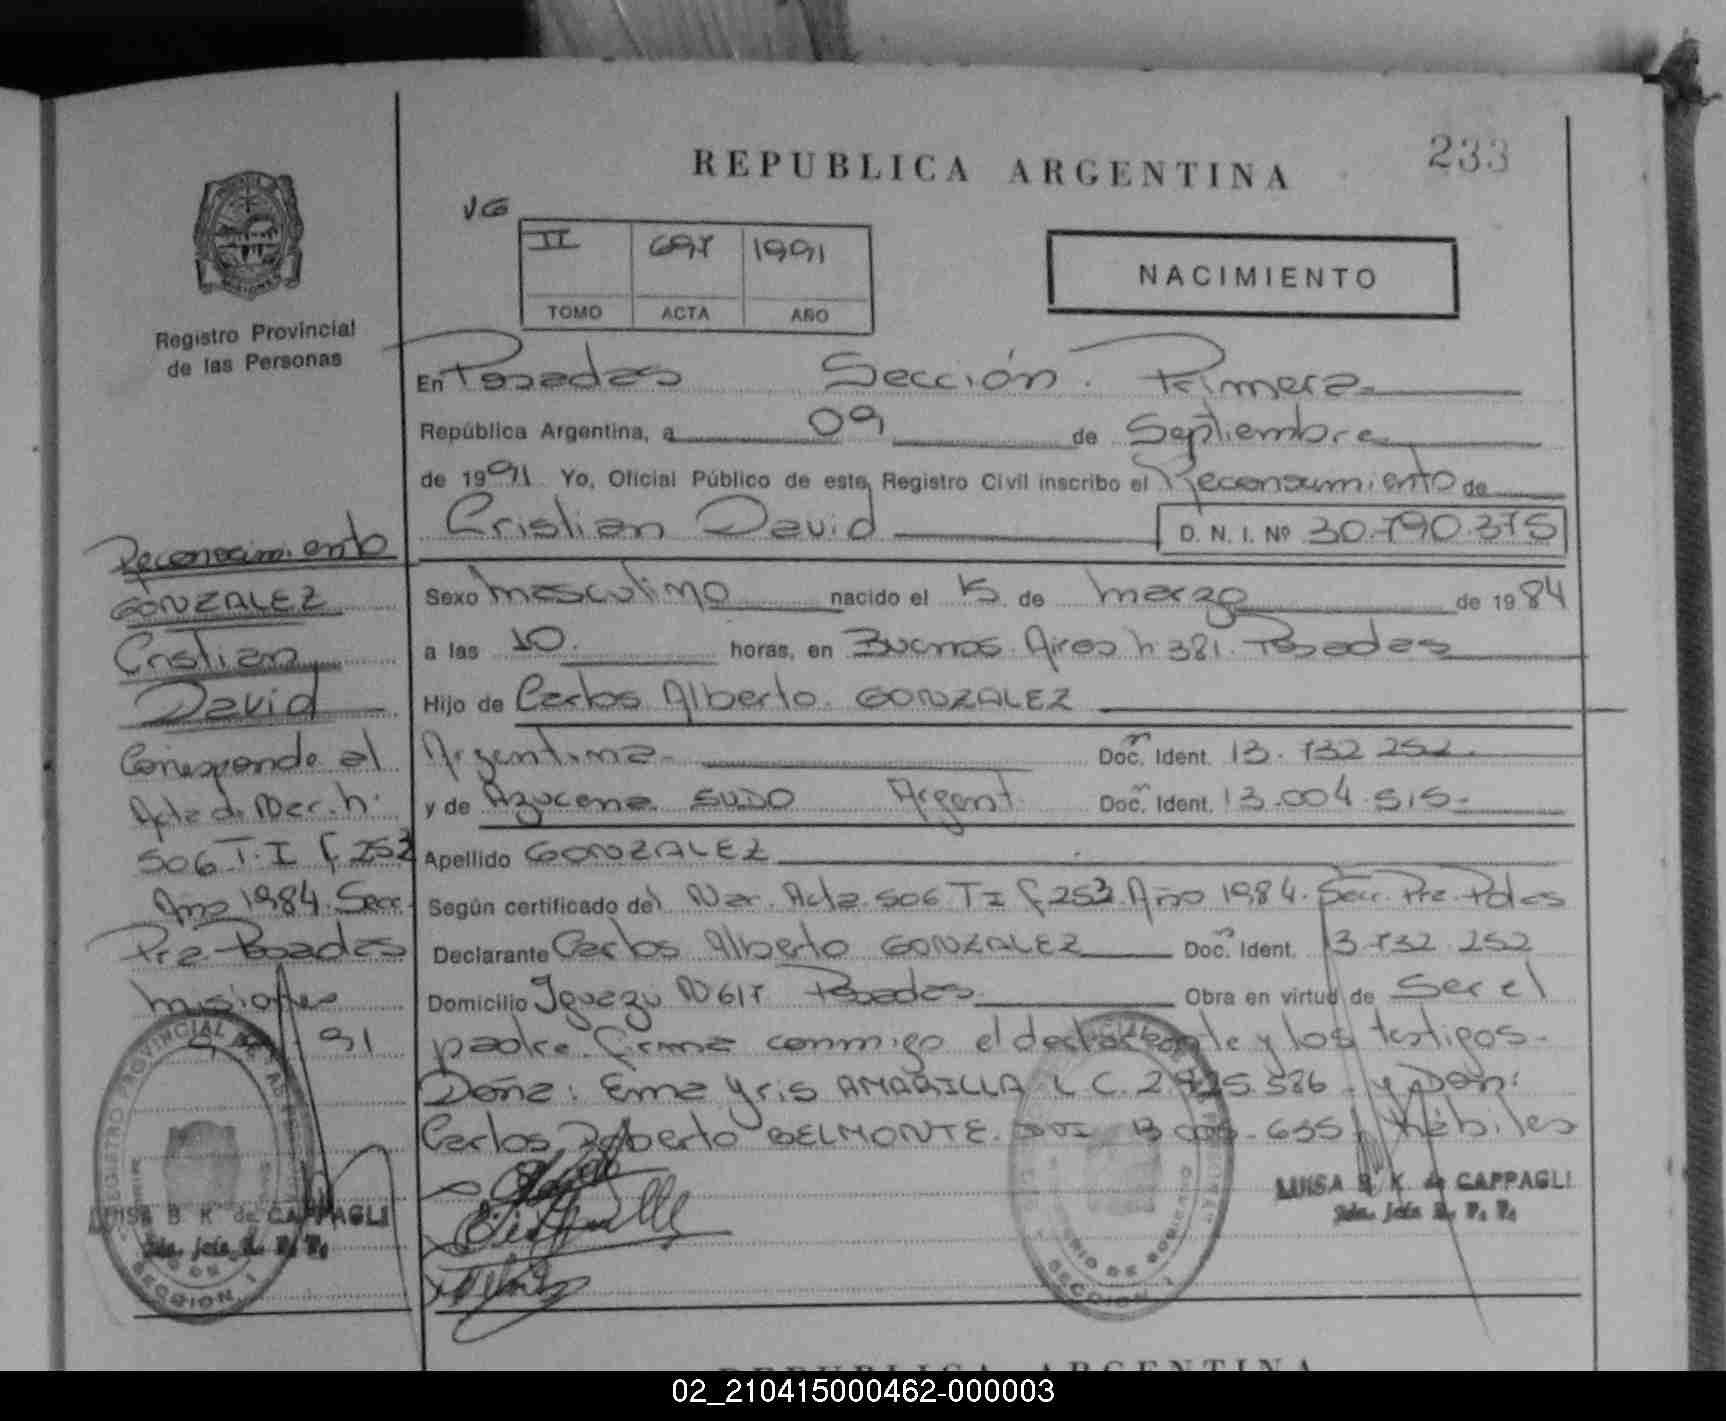 REPUBLICA ARGENTINA
233
VG
II 697 1991
TOMO ACTA AÑO
NACIMIENTO
Registro Provincial
de las Personas
En Posadas Sección Primera
República Argentina, a 09 de Septiembre
de 1991 Yo, Oficial Público de este Registro Civil inscribo el Reconocimiento de
Cristian David D. N. I. Nº 30.790.375
Sexo masculino nacido el 15 de marzo de 1984
a las 10 horas, en Buenos Aires n 381. Posadas
Hijo de Carlos Alberto GONZALEZ
Argentina Doc. Ident. 13.732 252
y de Azucena SUDO Argent. Doc. Ident. 13.004.515
Apellido GONZALEZ
Según certificado del Nac. Acta 506 T I f 253 Año 1984. Secc. Pra. Pdas
Declarante Carlos Alberto GONZALEZ Doc. Ident. 13.732 252
Domicilio Iguazu N 617 Posadas Obra en virtud de Ser el
padre. Firma conmigo el declarante y los testigos.
Doña: Ema Yris AMARILLA L C. 2.725.586 y Don:
Carlos Roberto BELMONTE. DNI 13 005.655 Hábiles
LUISA B. K. de CAPPAGLI
2da. Jefa R. P. P.
Reconocimiento
GONZALEZ
Cristian
David
Corresponde al
Acta de Nac. n.
506 T. I f 253
Año 1984. Secc.
Pra Posadas
Misiones
9 9 91
LUISA B. K. de CAPPAGLI
2da. Jefa R. P. P.
REGISTRO PROVINCIAL DE LAS PERSONAS
SECCION 1
SECCION 1
REPUBLICA ARGENTINA
02_210415000462-000003